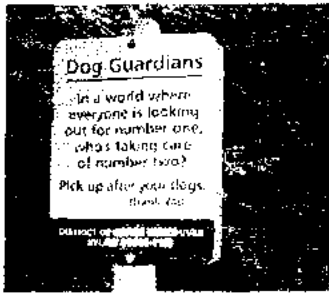 Dog Guardians
In a world where
everyone is looking
out for number one,
who's taking care
of number two?
Pick up after your dogs.
Thank you
DISTRICT OF